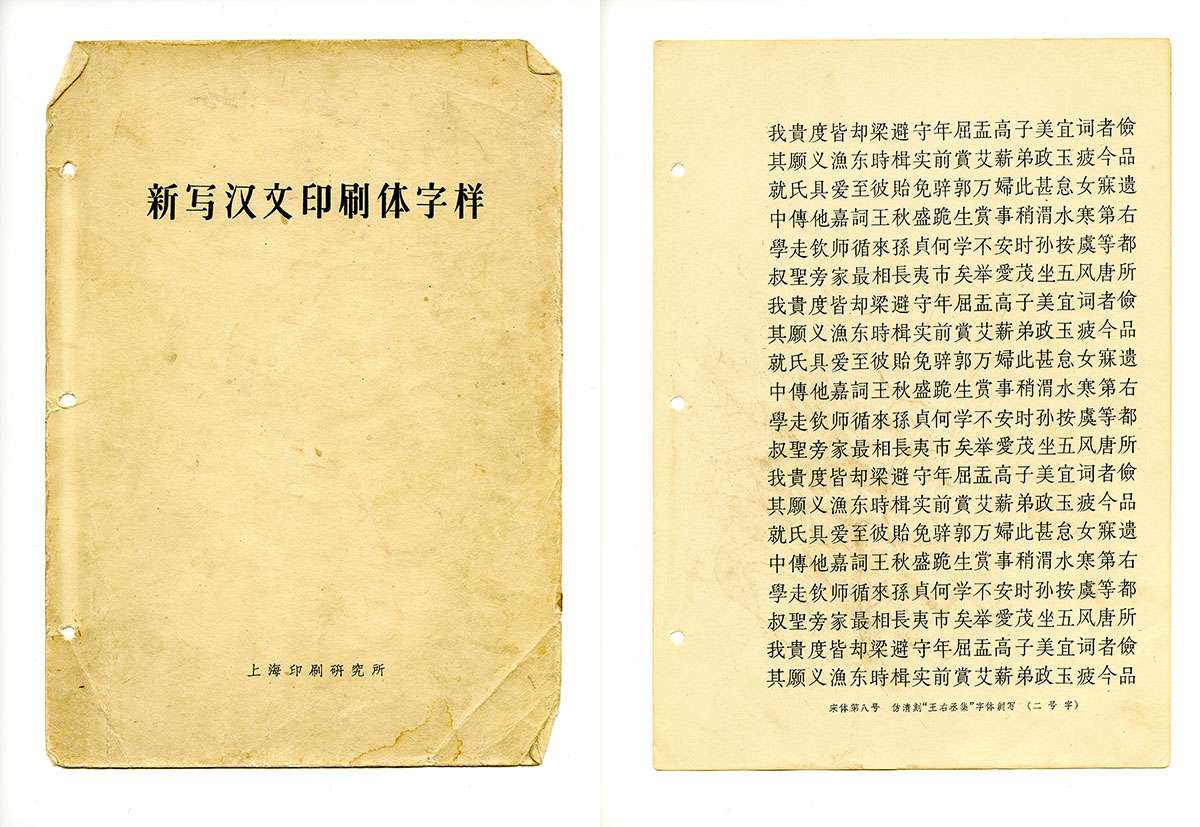 新写汉文印刷体字样
上海印刷硏究所
我貴度皆却梁避守年屈盂高子美宜词者儉
其願义漁东時楫实前賞艾薪弟政玉疲今品
就氏具爱至彼貽免骍郭万婦此甚怠女寐遺
中傳他嘉詞王秋盛跪生赏事稍渭水寒第右
學走钦师循來孫貞何学不安时孙按虞等都
叔聖旁家最相長夷市矣举愛茂坐五风唐所
我貴度皆却梁避守年屈盂高子美宜词者儉
其願义漁东時楫实前賞艾薪弟政玉疲今品
就氏具爱至彼貽免骍郭万婦此甚怠女寐遺
中傳他嘉詞王秋盛跪生赏事稍渭水寒第右
學走钦师循來孫貞何学不安时孙按虞等都
叔聖旁家最相長夷市矣举愛茂坐五风唐所
我貴度皆却梁避守年屈盂高子美宜词者儉
其願义漁东時楫实前賞艾薪弟政玉疲今品
就氏具爱至彼貽免骍郭万婦此甚怠女寐遺
中傳他嘉詞王秋盛跪生赏事稍渭水寒第右
學走钦师循來孫貞何学不安时孙按虞等都
叔聖旁家最相長夷市矣举愛茂坐五风唐所
我貴度皆却梁避守年屈盂高子美宜词者儉
其願义漁东時楫实前賞艾薪弟政玉疲今品
宋体第八号 仿清刻“王右丞集”字体创写（二号字）